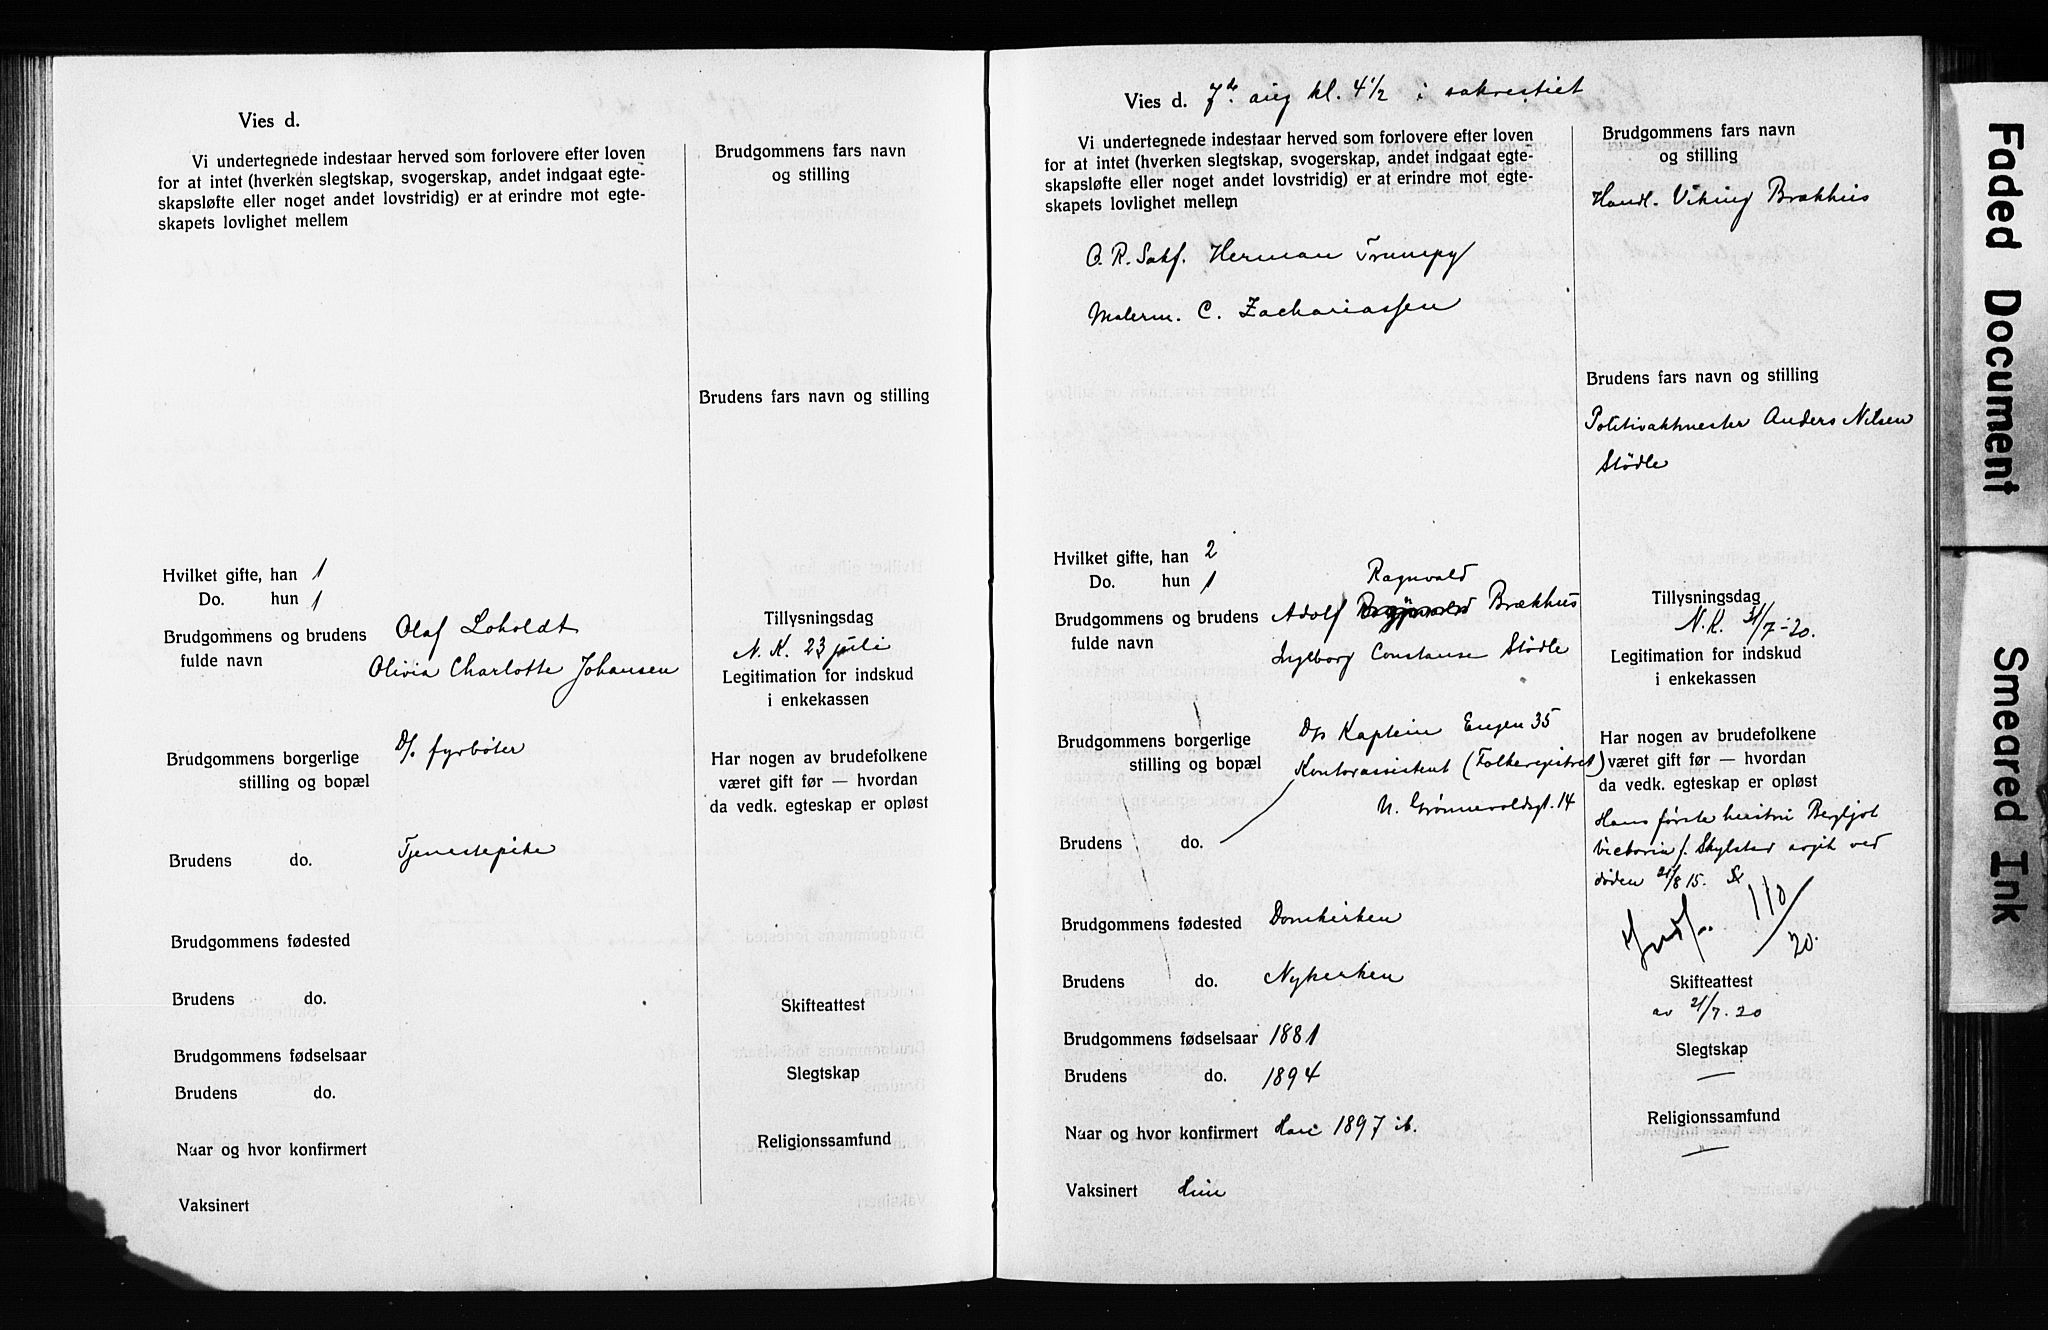 Vies d.
Vi undertegnede indestaar herved som forlovere efter loven
for at intet (hverken slegtskap, svogerskap, andet indgaat egte-
skapsløfte eller noget andet lovstridig) er at erindre mot egte-
skapets lovlighet mellem
Brudgommens fars navn
og stilling
Brudens fars navn og stilling
Hvilket gifte, han 1
Do. hun 1
Brudgommens og brudens Olaf Loholdt
fulde navn Olivia Charlotte Johansen
Tillysningsdag
N. K. 23 juli
Legitimation for indskud
i enkekassen
Brudgommens borgerlige D/s fyrbøter
stilling og bopæl
Har nogen av brudefolkene
været gift før — hvordan
da vedk. egteskap er opløst
Brudens do. Tjenestepike
Brudgommens fødested
Brudens do.
Skifteattest
Brudgommens fødselsaar
Slegtskap
Brudens do.
Naar og hvor konfirmert
Religionssamfund
Vaksinert
Vies d. 7de aug kl. 4 1/2 i sakrestiet
Vi undertegnede indestaar herved som forlovere efter loven
for at intet (hverken slegtskap, svogerskap, andet indgaat egte-
skapsløfte eller noget andet lovstridig) er at erindre mot egte-
skapets lovlighet mellem
O. R. Sakf. Herman Trumpy
Malerm. C. Zachariassen
Brudgommens fars navn
og stilling
Handl. Viking Brækhus
Brudens fars navn og stilling
Politivaktmester Anders Nilsen
Stødle
Hvilket gifte, han 2
Do. hun 1
Ragnvald
Brudgommens og brudens Adolf Brækhus
fulde navn Ingeborg Constanse Stødle
Tillysningsdag
N. K. 31/7-20.
Legitimation for indskud
i enkekassen
Brudgommens borgerlige D/s Kaptein Engen 35
stilling og bopæl Kontorassistent (Folkeregistret)
N. Grønnevoldsgt. 14
Brudens do.
Har nogen av brudefolkene
været gift før — hvordan
da vedk. egteskap er opløst
Hans første hustru Bergljot
Victoria f. Skylstad avgik ved
døden 21/8 15.
110/20.
Brudgommens fødested Domkirken
Brudens do. Nykirken
Skifteattest
av 21/7.20
Brudgommens fødselsaar 1881
Slegtskap
—
Brudens do. 1894
Naar og hvor konfirmert 1897 ib.
Religionssamfund
— " —
Vaksinert
Faded Document
Smeared Ink